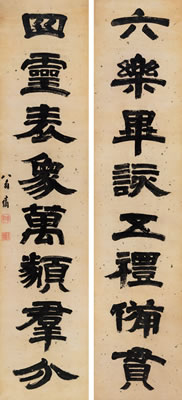 六樂畢該五禮備貫
四靈表象萬類羣分